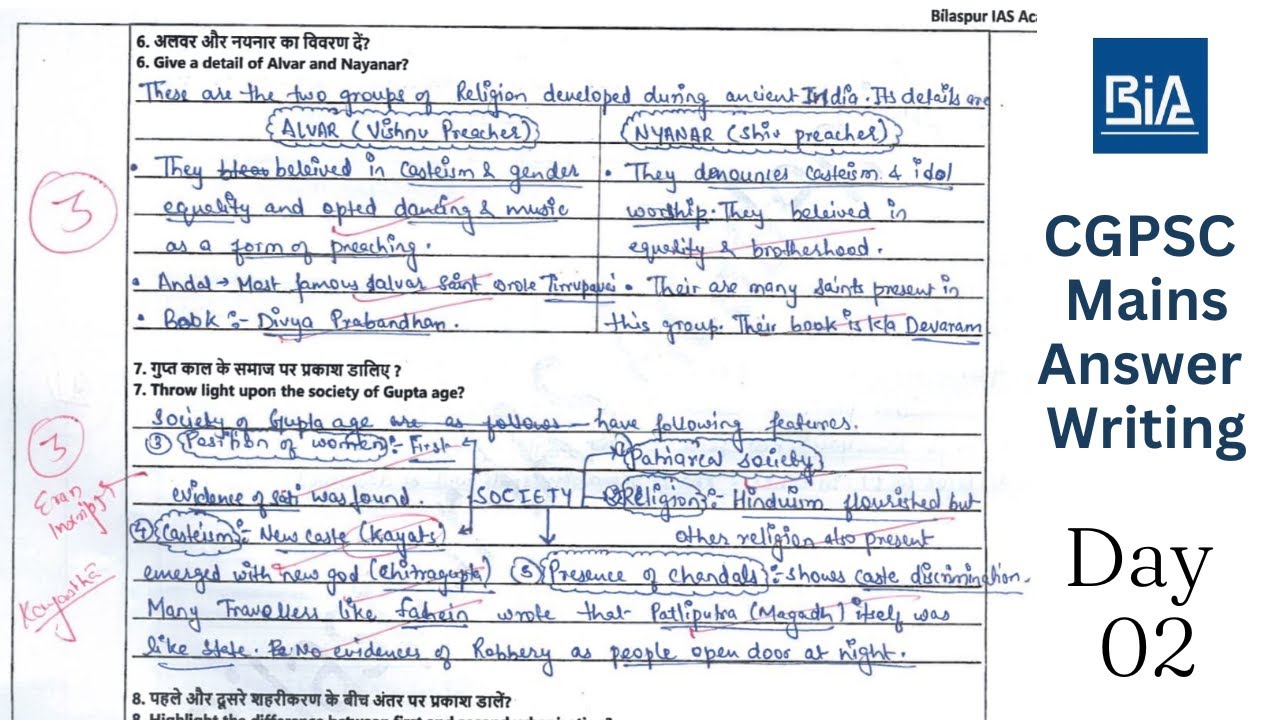 Bilaspur IAS Aca
6. अलवर और नयनार का विवरण दें?
6. Give a detail of Alvar and Nayanar?
These are the two groups of Religion developed during ancient India. Its details are
ALVAR (Vishnu Preacher)
NYANAR (Shiv preacher)
• They beleived in casteism & gender
equality and opted dancing & music
as a form of preaching.
• Andal → Most famous salvar saint wrote Tirrupavai
• Book :- Divya Prabandham.
• They denounces casteism & idol
worship. They beleived in
equality & brotherhood.
• Their are many saints present in
this group. Their book is k/a Devaram
3
7. गुप्त काल के समाज पर प्रकाश डालिए ?
7. Throw light upon the society of Gupta age?
Society of Gupta age are as follows have following features.
③ Position of women :- First
evidence of sati was found.
SOCIETY
Patriarcal society
Religion :- Hinduism flourished but
other religion also present
④ Casteism :- New caste (Kayats)
emerged with new god (Chitragupta) ⑤ Presence of chandals :- shows caste discrimination.
Many Travellers like fahein wrote that Patliputra (Magadh) itself was
like state. No evidences of Robbery as people open door at night.
3
Eran
Kayastha
8. पहले और दूसरे शहरीकरण के बीच अंतर पर प्रकाश डालें?
8. Highlight the difference between first and second urbanization?
BiA
CGPSC
Mains
Answer
Writing
Day
02